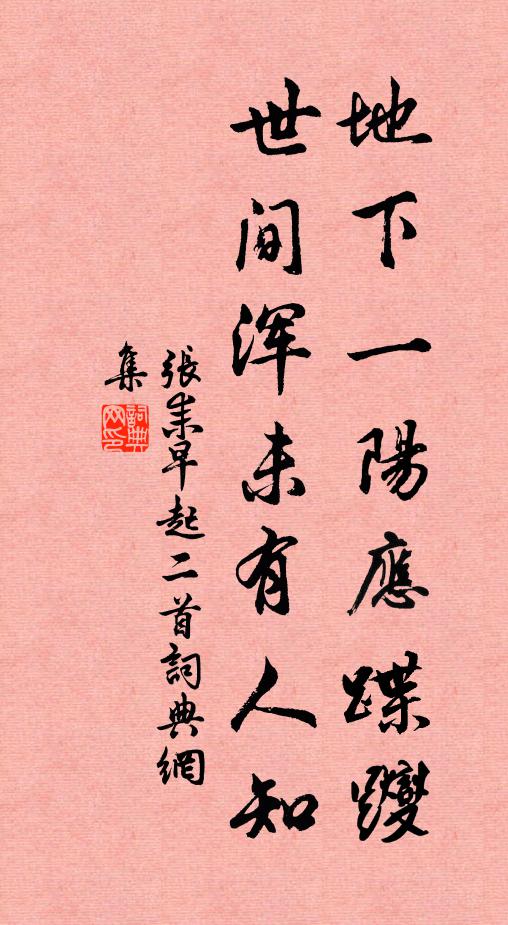 地下一陽應蹀躞
世間渾未有人知
張耒早起二首詞典網
集
詞典
网印